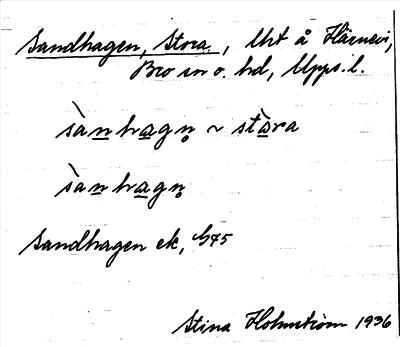 Sandhagen, Stora, Uht å Härnevi,
Bro sn o. hd, Upps. l.
sànhagn̥ ~ stòra
sànhagn̥
Sandhagen ek, G75
Stina Holmström 1936